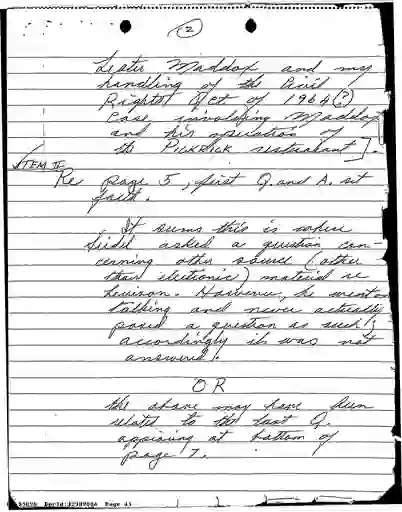 2
Lester Maddox and my
handling of the Civil
Rights Act of 1964(?)
Case involving Maddox
and his operation of
the PICKRICK restaurant].
ITEM II
Re page 5, first Q. and A. set
forth.
It seems this is where
asked a question con-
cerning other source (other
than electronic) material re
Levison. However, he went on
talking and never actually
posed a question as such;
accordingly it was not
answered.
OR
the above may have been
related to the last Q.
appearing at bottom of
page 7.
Page 43